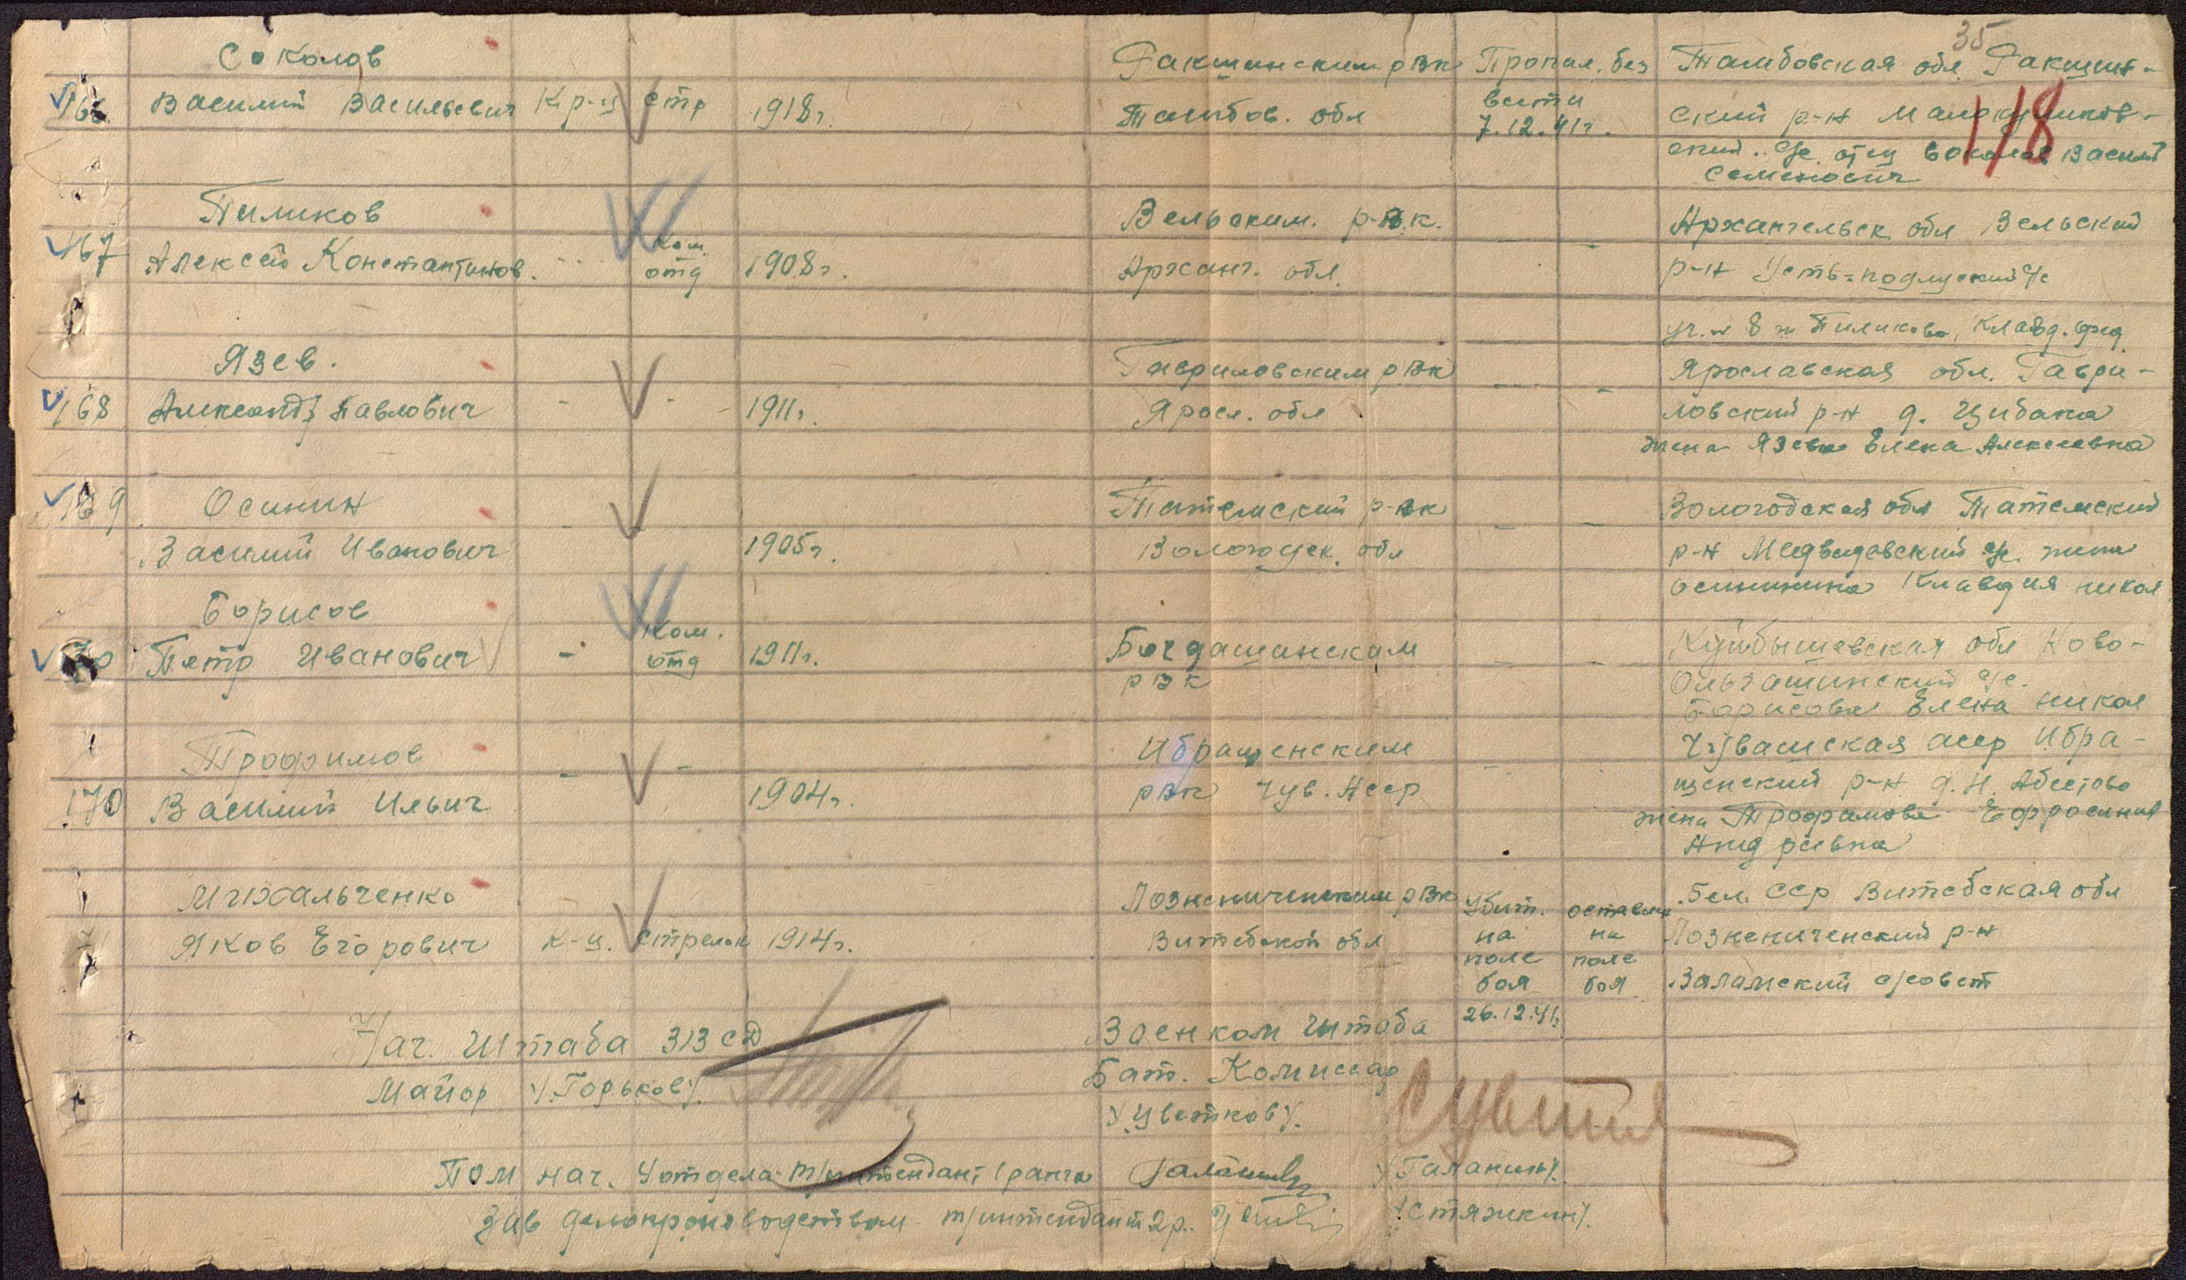 35
118
Соколов
166 Василий Васильевич Кр-ц стр 1918г. Ракшинским рвк Тамбов. обл Пропал. без вести 7.12.41г. Тамбовская обл Ракшин-
ский р-н
ский с/с отец Соколов Василий
Семенович
Пиликов
167 Алексей Константинов. ком. отд 1908г. Вельским. р.в.к. Арханг. обл. - - Архангельск обл Вельский
р-н Усть-подлуский с/с
Пиликова Клавд.
Язев.
168 Александр Павлович - - - 1911г. Гавриловским рвк Яросл. обл - - Ярославская обл. Гаври-
ловский р-н д. Цибака
жена Язева Елена Алексеевна
169 Осинин
Василий Иванович - - 1905г. Татемский р-вк Вологодск. обл - - Вологодская обл Татемский
р-н Медведевский с/с. жена
Осинина Клавдия никол
Борисов
170 Петр Иванович - ком. отд 1911г. Богдашинским рвк - - Куйбышевская обл Ново-
с/с.
Борисова Елена никол
Трофимов
170 Василий Ильич - - 1904г. Ибращенским рвк Чув. Асср - Чувашская асср Ибра-
щенский р-н д. Н. Абестово
жена Трофимова Ефросиния
Андреевна
Михальченко
Яков Егорович к-ц. стрелок 1914г. рвк Витебской обл Убит. на поле боя 26.12.41г оставлен на поле боя Бел. сср Витебская обл
р-н
с/совет
Нач. Штаба 313 сд
Майор /Горьков/.
Военком Штаба
Бат. Комиссар
/Цветков/.
Пом нач. 4 отдела т/интендант 1 ранга /Галанин/.
Зав делопроизводством т/интендант 2 р. /Стяжкин/.